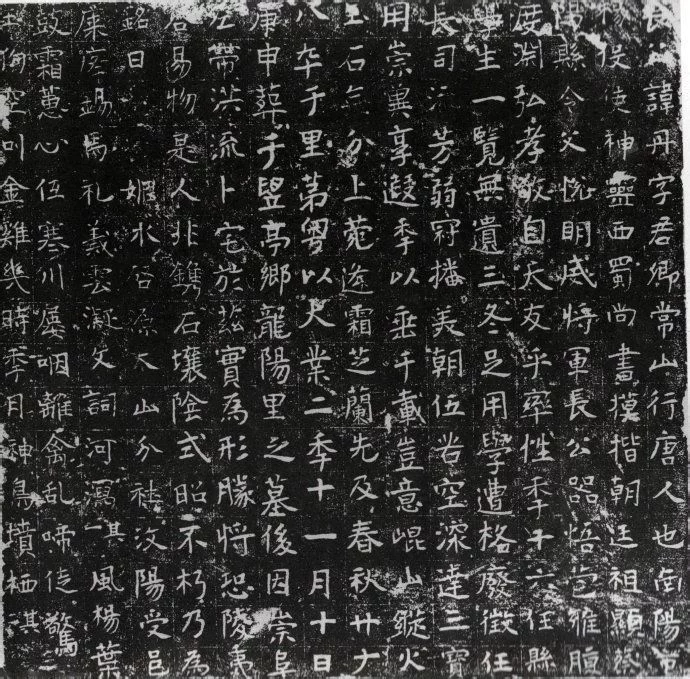 諱丹字君卿常山行唐人也南陽
使神靈西蜀尚書模楷朝廷祖顯蔡
陽縣令父悅明威將軍長公器悟
度淵弘孝敬自天友乎率性季十六任縣
學生一覽無遺三冬足用學遭格廢徵任
長司流芳弱冠播美朝伍岩空深達三寶
用崇冀享遐季以垂千載豈意崐山縱火
玉石分上菀逢霜芝蘭先及春秋廿六
八卒于里第粤以大業二季十一月十日
庚申葬于豎亭鄉龍陽里之墓後因崇阜
左帶洪流卜宅於茲實爲形勝將恐陵夷
易物是人非鐫石壤陰式昭不朽乃爲
銘曰 嬀水啓源大山分社汶陽受邑
錫馬礼義雲凝文詞河瀉其風楊葉
鼓霜蕙心伍寒川屢咽離禽乱啼徒驚
空叫金雞幾時季月神鳥墳栖其